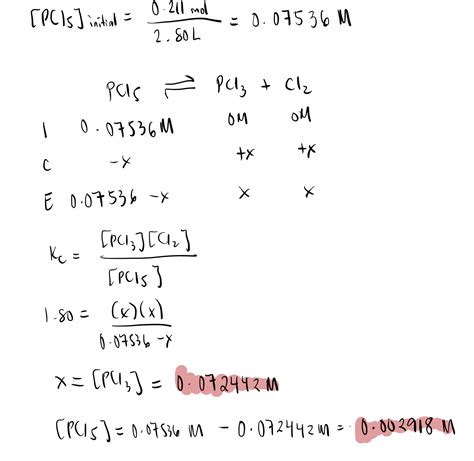 [PCl5]initial = 0.211 mol / 2.80L = 0.07536 M
PCl5 ⇌ PCl3 + Cl2
I 0.07536M 0M 0M
C -x +x +x
E 0.07536 -x x x
Kc = [PCl3][Cl2] / [PCl5]
1.80 = (x)(x) / 0.07536 -x
x = [PCl3] = 0.072442 M
[PCl5] = 0.07536 M - 0.072442 M = 0.002918 M